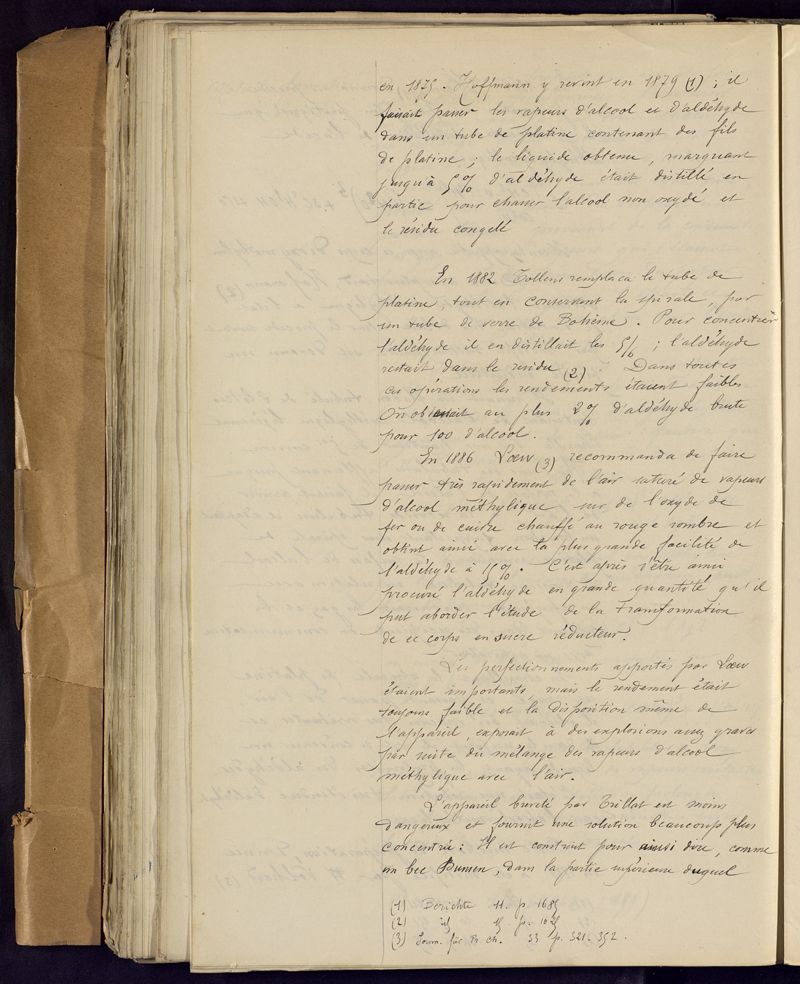 en 1875. Hoffmann y revint en 1879 (1) ; il
faisait passer les vapeurs d'alcool et d'aldéhyde
dans un tube de platine contenant des fils
de platine ; le liquide obtenu, marquant
jusqu'à 5 % d'aldéhyde était distillé en
partie pour chasser l'alcool non oxydé et
le résidu congelé
En 1882 Tollens remplaca le tube de
platine, tout en conservant la spirale, par
un tube de verre de Bohème. Pour concentrer
l'aldéhyde il en distillait les 5/6 ; l'aldéhyde
restait dans le résidu (2). Dans toutes
ces opérations les rendements étaient faibles
On obtenait au plus 2 % d'aldéhyde brute
pour 100 d'alcool.
En 1886 Lœw (3) recommanda de faire
passer très rapidement de l'air saturé de vapeurs
d'alcool méthylique sur de l'oxyde de
fer ou de cuivre chauffé au rouge sombre et
obtint ainsi avec la plus grande facilité de
l'aldéhyde à 15 %. C'est après s'être ainsi
procuré l'aldéhyde en grande quantité qu'il
put aborder l'étude de la transformation
de ce corps en sucre réducteur.
Les perfectionnements apportés par Lœw
étaient importants, mais le rendement était
toujours faible et la disposition même de
l'appareil, exposait à des explosions assez graves
par suite du mélange des vapeurs d'alcool
méthylique avec l'air.
L'appareil breveté par Trillat est moins
dangereux et fournit une solution beaucoup plus
concentrée : Il est construit pour ainsi dire, comme
un bec Bunsen, dans la partie supérieure duquel
(1) Berichte 11. p. 1685
(2) id p.
(3) Journ. für Pr ch. 33 p. 321-352.